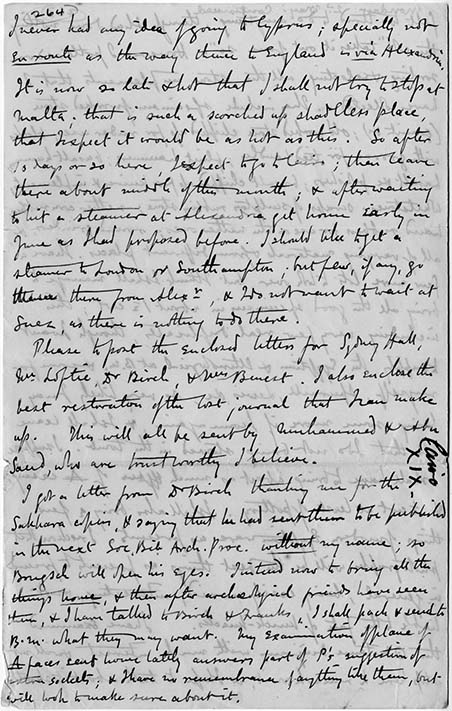 264
I never had any idea of going to Cyprus; specially not
en route as the way thence to England is via Alexandria.
It is now so late & hot that I shall not try to stop at
Malta; that is such a scorched up shadeless place,
that I expect it would be as hot as this. So after
10 days or so here, I expect to go to Cairo; then leave
there about middle of this month; & after waiting
to hit a steamer at Alexandria get home early in
June as I had proposed before. I should like to get a
steamer to London or Southampton; but few, if any, go
there from Alexa, & I do not want to wait at
Suez, as there is nothing to do there.
Please to post the enclosed letters for Sydney Hall,
Mr Loftie, Dr Birch, & Miss Benest. I also enclose the
best restoration of the lost journal that I can make
up. This will all be sent by Muhammed & Abu
Saud, who are trustworthy I believe.
Cairo
XIX.
I got a letter from Dr Birch thanking me for the
Sakkara copies, & saying that he had sent them to be published
in the next Soc. Bib. Arch. Proc. without my name; so
Brugsch will open his eyes. I intend now to bring all the
things home, & then after archaeological friends have seen
them, & I have talked to Birch & Franks, I shall pack & send to
B.M. what they may want. My examination of plane of
faces sent home lately answers part of Pr. suggestion of
sockets; & I have no remembrance of anything like them, but
will look to make sure about it.